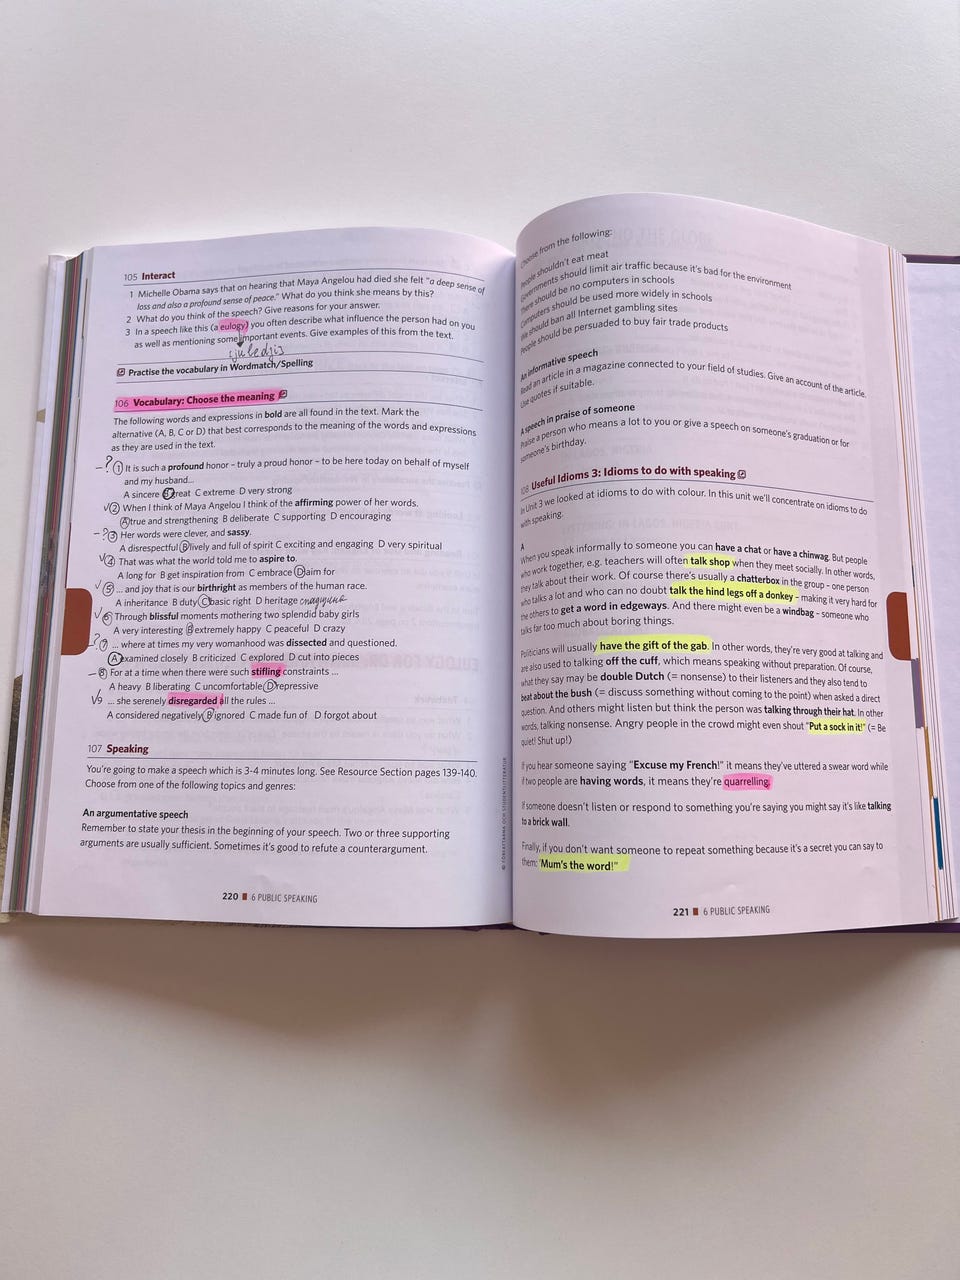 105 Interact
1 Michelle Obama says that on hearing that Maya Angelou had died she felt "a deep sense of
loss and also a profound sense of peace." What do you think she means by this?
2 What do you think of the speech? Give reasons for your answer.
3 In a speech like this (a eulogy) you often describe what influence the person had on you
as well as mentioning some important events. Give examples of this from the text.
Practise the vocabulary in Wordmatch/Spelling
106 Vocabulary: Choose the meaning
The following words and expressions in bold are all found in the text. Mark the
alternative (A, B, C or D) that best corresponds to the meaning of the words and expressions
as they are used in the text.
–? 1 It is such a profound honor – truly a proud honor – to be here today on behalf of myself
and my husband...
A sincere B great C extreme D very strong
√ 2 When I think of Maya Angelou I think of the affirming power of her words.
A true and strengthening B deliberate C supporting D encouraging
–? 3 Her words were clever, and sassy.
A disrespectful B lively and full of spirit C exciting and engaging D very spiritual
√ 4 That was what the world told me to aspire to.
A long for B get inspiration from C embrace D aim for
√ 5 ... and joy that is our birthright as members of the human race.
A inheritance B duty C basic right D heritage
√ 6 Through blissful moments mothering two splendid baby girls
A very interesting B extremely happy C peaceful D crazy
–? 7 ... where at times my very womanhood was dissected and questioned.
A examined closely B criticized C explored D cut into pieces
– 8 For at a time when there were such stifling constraints ...
A heavy B liberating C uncomfortable D repressive
√ 9 ... she serenely disregarded all the rules ...
A considered negatively B ignored C made fun of D forgot about
107 Speaking
You're going to make a speech which is 3-4 minutes long. See Resource Section pages 139-140.
Choose from one of the following topics and genres:
An argumentative speech
Remember to state your thesis in the beginning of your speech. Two or three supporting
arguments are usually sufficient. Sometimes it's good to refute a counterargument.
220 6 PUBLIC SPEAKING
© FÖRFATTARNA OCH STUDENTLITTERATUR
Choose from the following:
People shouldn't eat meat
Governments should limit air traffic because it's bad for the environment
There should be no computers in schools
Computers should be used more widely in schools
We should ban all Internet gambling sites
People should be persuaded to buy fair trade products
An informative speech
Read an article in a magazine connected to your field of studies. Give an account of the article.
Use quotes if suitable.
A speech in praise of someone
Praise a person who means a lot to you or give a speech on someone's graduation or for
someone's birthday.
108 Useful Idioms 3: Idioms to do with speaking
In Unit 3 we looked at idioms to do with colour. In this unit we'll concentrate on idioms to do
with speaking.
A
When you speak informally to someone you can have a chat or have a chinwag. But people
who work together, e.g. teachers will often talk shop when they meet socially. In other words,
they talk about their work. Of course there's usually a chatterbox in the group – one person
who talks a lot and who can no doubt talk the hind legs off a donkey – making it very hard for
the others to get a word in edgeways. And there might even be a windbag – someone who
talks far too much about boring things.
Politicians will usually have the gift of the gab. In other words, they're very good at talking and
are also used to talking off the cuff, which means speaking without preparation. Of course,
what they say may be double Dutch (= nonsense) to their listeners and they also tend to
beat about the bush (= discuss something without coming to the point) when asked a direct
question. And others might listen but think the person was talking through their hat. In other
words, talking nonsense. Angry people in the crowd might even shout "Put a sock in it!" (= Be
quiet! Shut up!)
If you hear someone saying "Excuse my French!" it means they've uttered a swear word while
if two people are having words, it means they're quarrelling.
If someone doesn't listen or respond to something you're saying you might say it's like talking
to a brick wall.
Finally, if you don't want someone to repeat something because it's a secret you can say to
them: "Mum's the word!"
221 6 PUBLIC SPEAKING